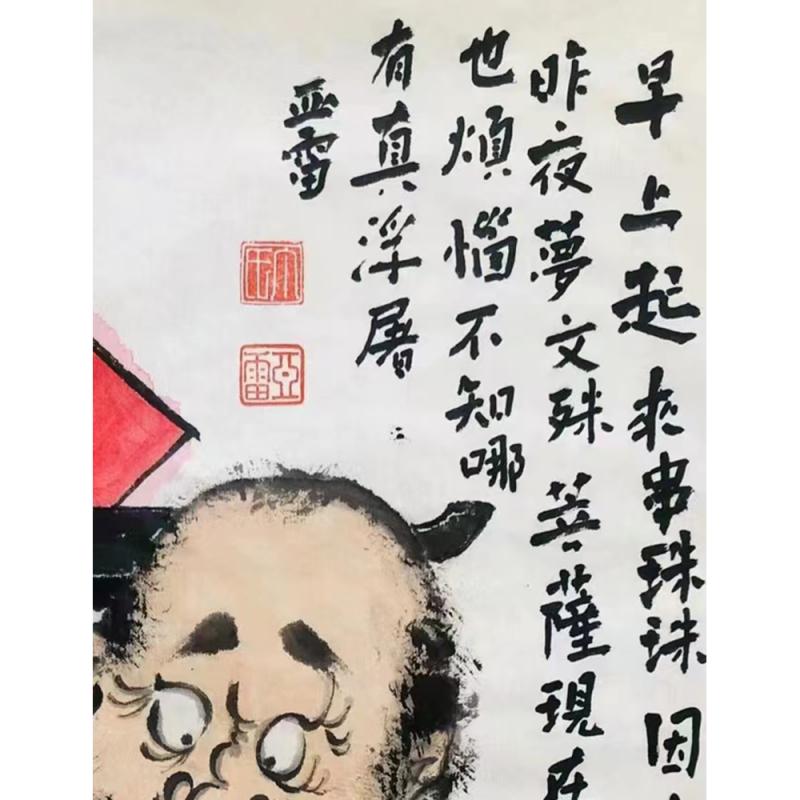 早上起來串珠珠因
昨夜夢文殊菩薩現在
也煩惱不知哪
有真浮屠
亚雷
亞雷